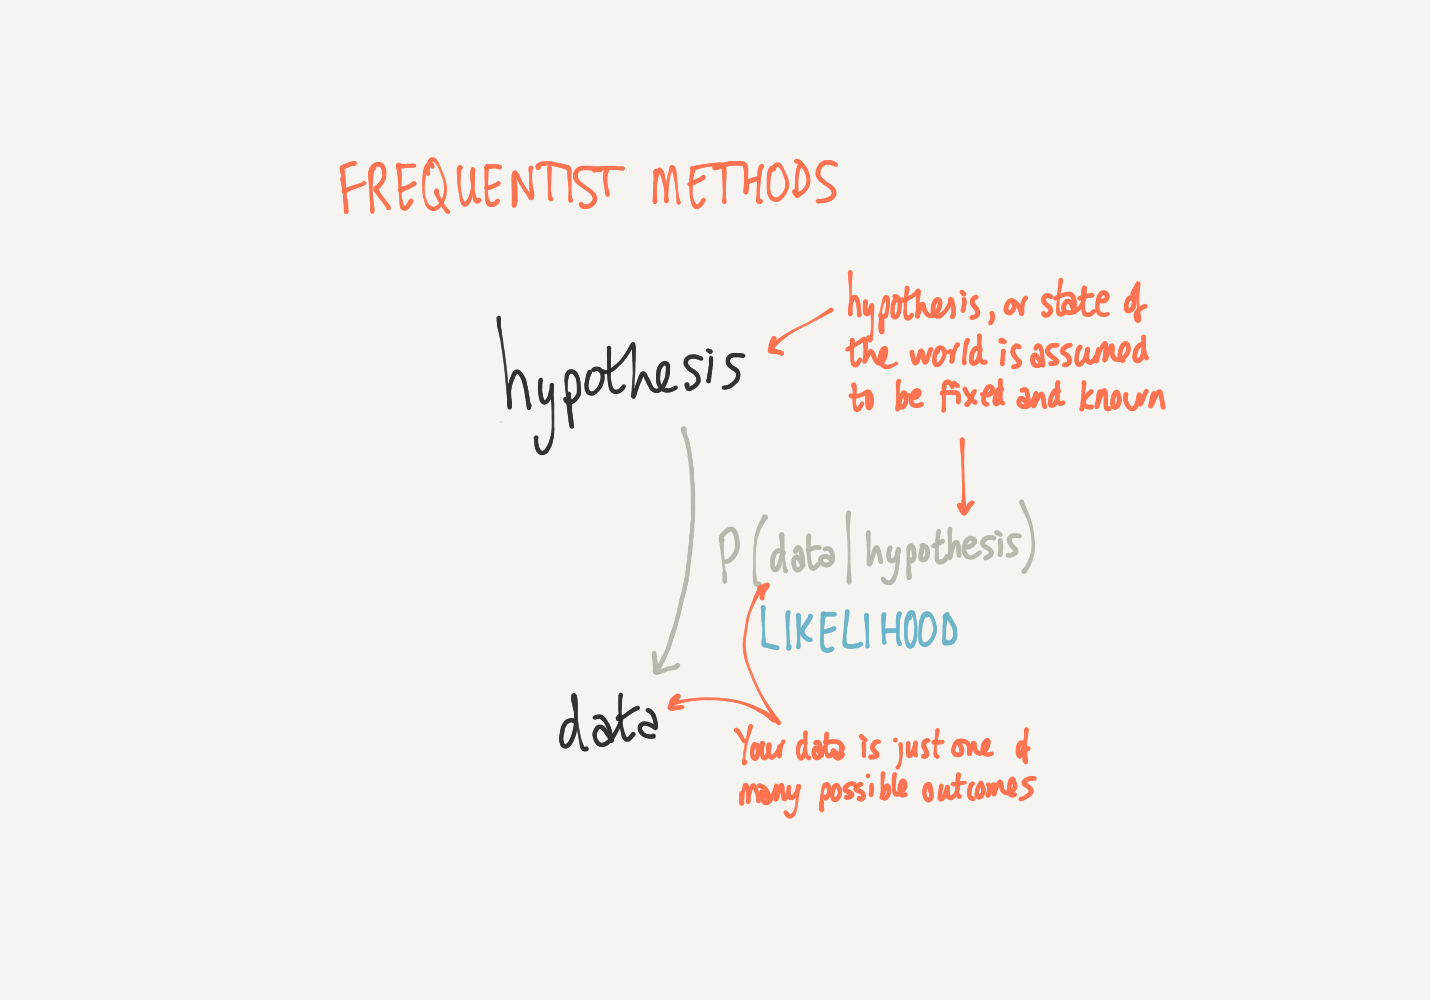 FREQUENTIST METHODS
hypothesis
hypothesis, or state of
the world is assumed
to be fixed and known
P(data|hypothesis)
LIKELIHOOD
data
Your data is just one of
many possible outcomes